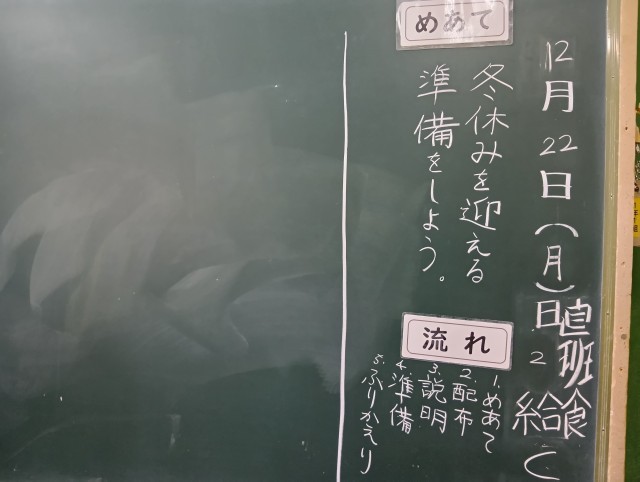 12月22日(月)日直2班給食C
めあて
冬休みを迎える
準備をしよう。
流れ
1.めあて
2.配布
3.説明
4.準備
5.ふりかえり